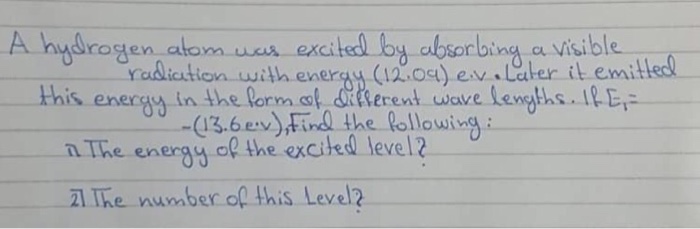 A hydrogen atom was excited by absorbing a visible
radiation with energy (12.09) e.v. Later it emitted
this energy in the form of different wave lengths. If E₁=
-(13.6 e.v), Find the following:
1] The energy of the excited level?
2] The number of this Level?